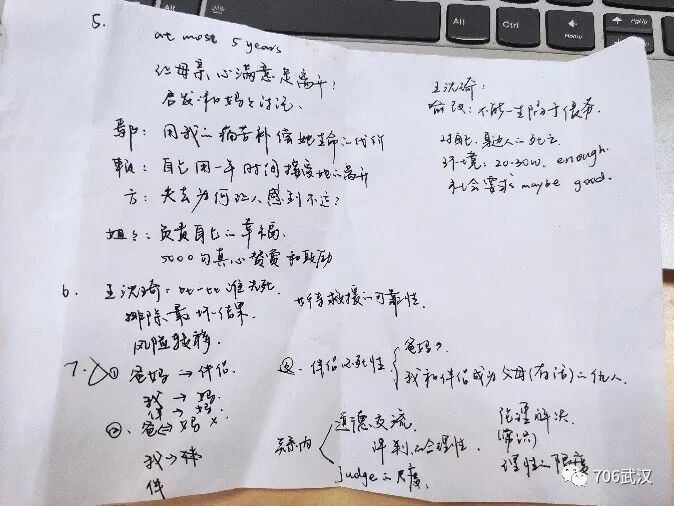 5.
at most 5 years
父母亲心满意足离开?
启发:和妈妈讨论.
鄢: 用我的病苦补偿她生命的代价
赖: 自己用一年时间接受她的离开
方: 失去为何让人感到不适?
姐姐: 负责自己的幸福.
5000句真心赞赏和鼓励
王沈琦:
哈段: 不能一生陷于债务.
对自己、身边人的死亡
环境: 20-30W. enough.
社会要求 maybe good.
6. 王沈琦: 比一比谁先死
排除最坏结果
风险转移.
等待救援的可靠性.
7. ① 爸妈 → 伴侣.
我 → 妈.
伴 → 妈.
②. 爸 妈 ×.
我 →
伴
伴侣 死性
爸妈?
我和伴侣成为父母(有话)的仇人.
关系内
道德交流
得到的合理性.
Judge的尺度.
伦理解决.
(常识)
理性的限度
706武汉